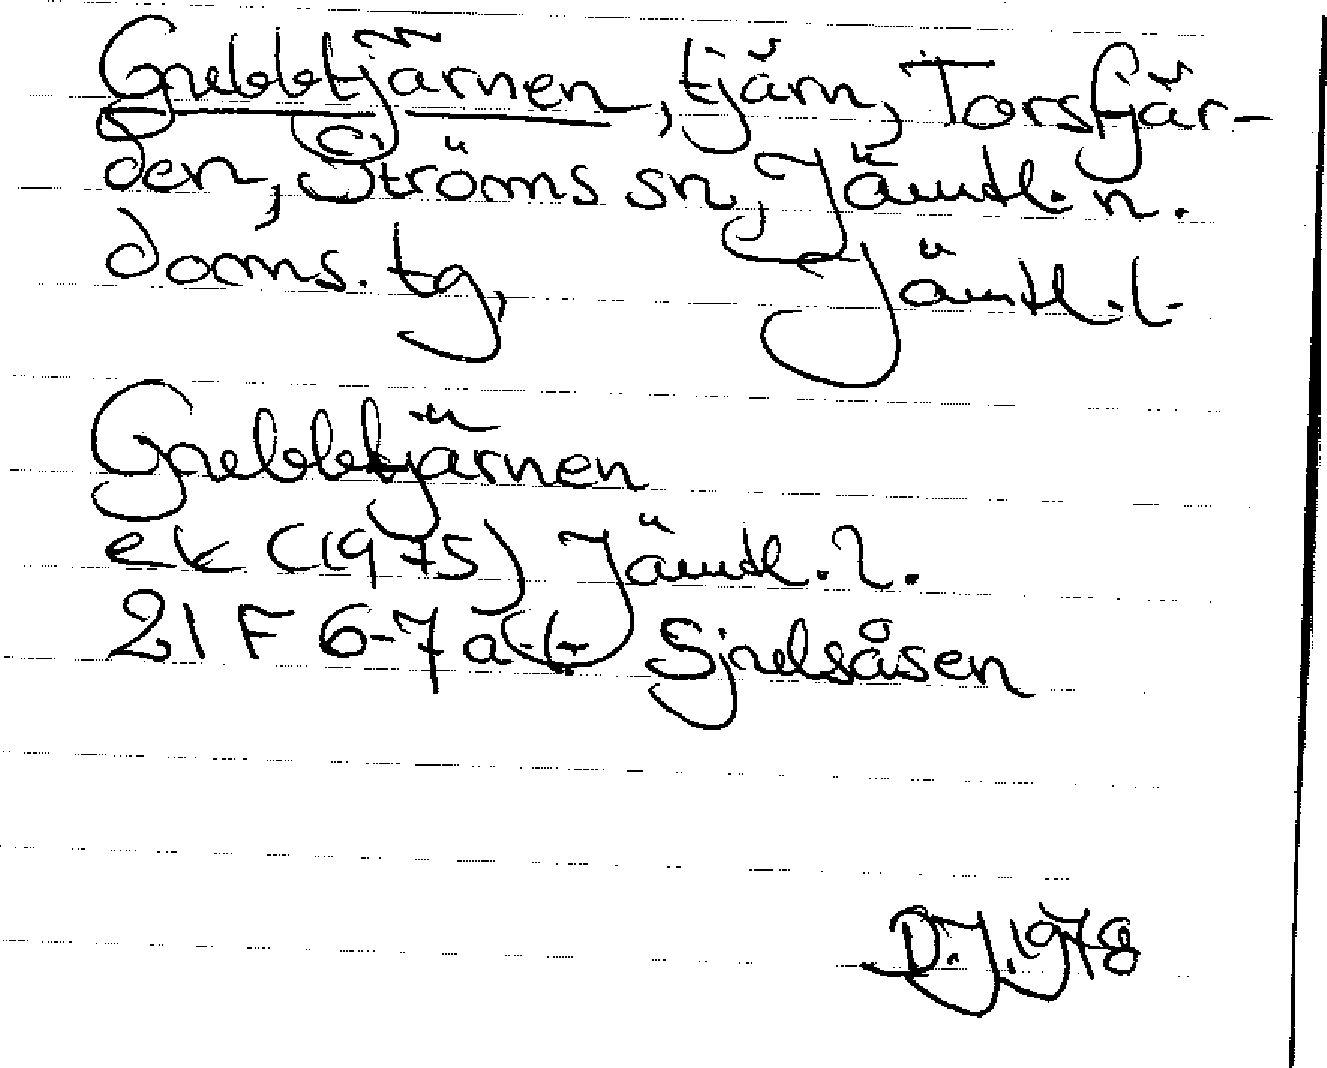 Grebbtjärnen, tjärn, Torsfjär-
den, Ströms sn, Jämtl. n.
doms. tg, Jämtl. l.
Grebbtjärnen
ek (1975) Jämtl. l.
21 F 6-7 a-b Sjulsåsen
D.J. 1978